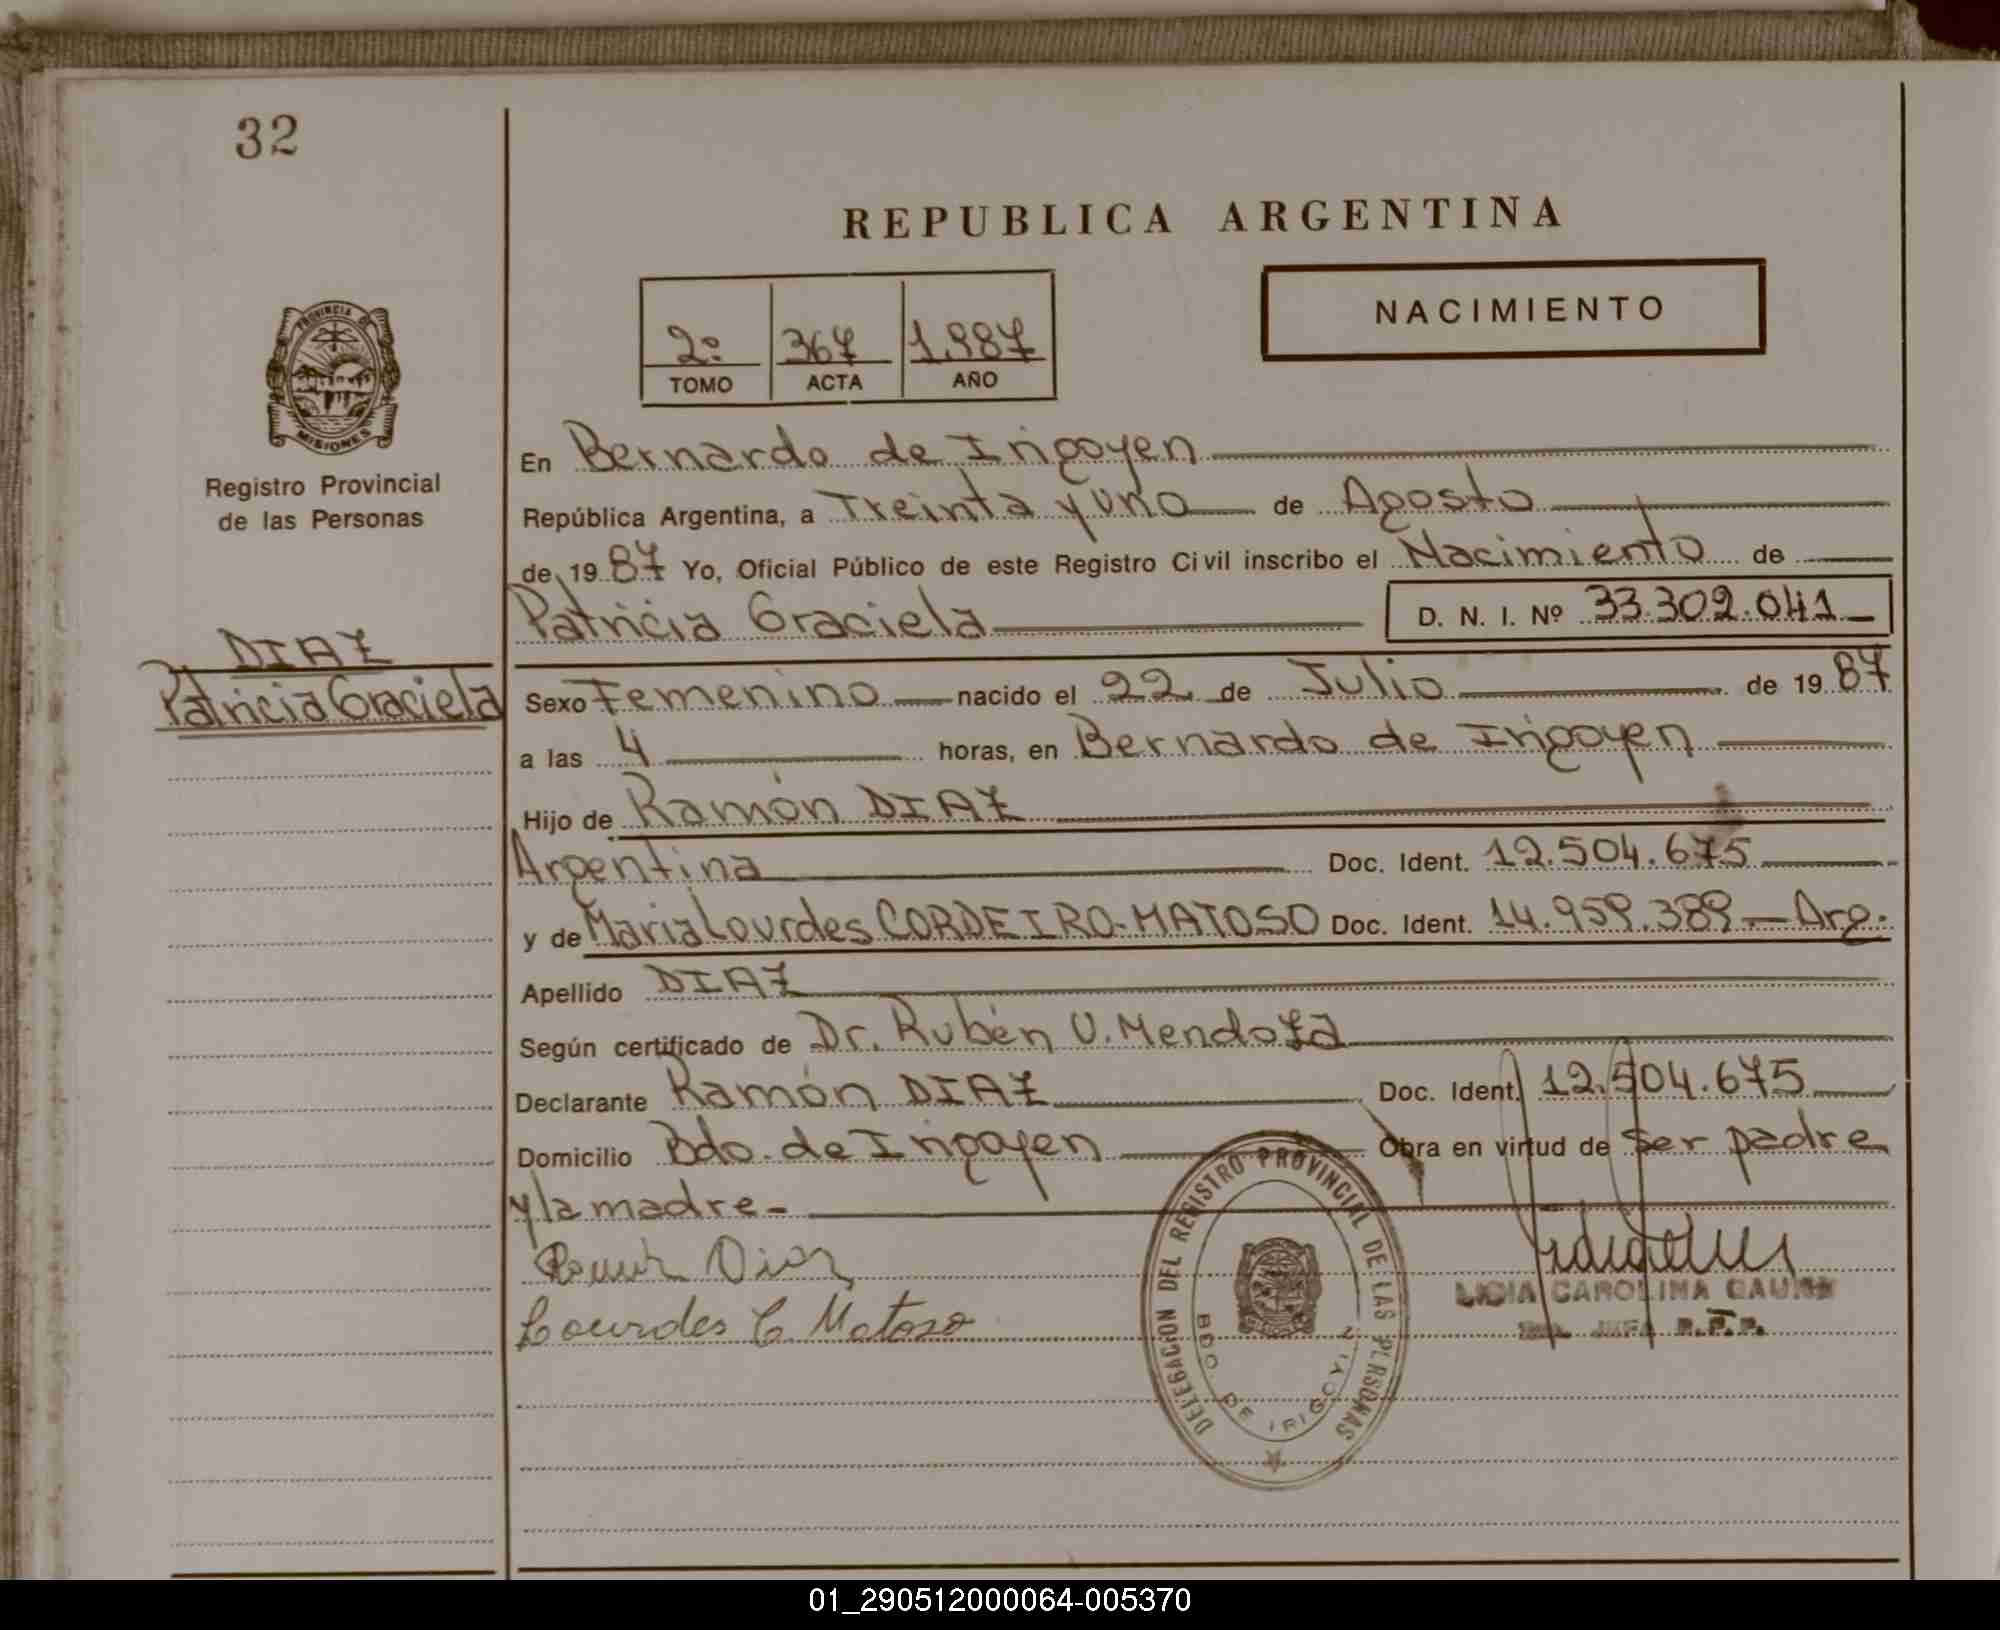 32
REPUBLICA ARGENTINA
NACIMIENTO
2º 367 1.987
TOMO ACTA AÑO
PROVINCIA DE
MISIONES
Registro Provincial
de las Personas
En Bernardo de Irigoyen
República Argentina, a Treinta y uno de Agosto
de 1987 Yo, Oficial Público de este Registro Civil inscribo el Nacimiento de
Patricia Graciela D. N. I. Nº 33.302.041
DIAZ
Patricia Graciela
Sexo Femenino nacido el 22 de Julio de 1987
a las 4 horas, en Bernardo de Irigoyen
Hijo de Ramón DIAZ
Argentina Doc. Ident. 12.504.675
y de Maria Lourdes CORDEIRO-MATOSO Doc. Ident. 14.959.389.- Arg.
Apellido DIAZ
Según certificado de Dr. Rubén U. Mendoza
Declarante Ramón DIAZ Doc. Ident. 12.504.675
Domicilio Bdo. de Irigoyen Obra en virtud de ser padre
y la madre-
Ramon Diaz
Lourdes C. Matoso
DELEGACION DEL REGISTRO PROVINCIAL DE LAS PERSONAS
BDO. DE IRIGOYEN
LIGIA CAROLINA
JEFA R.P.P.
01_290512000064-005370